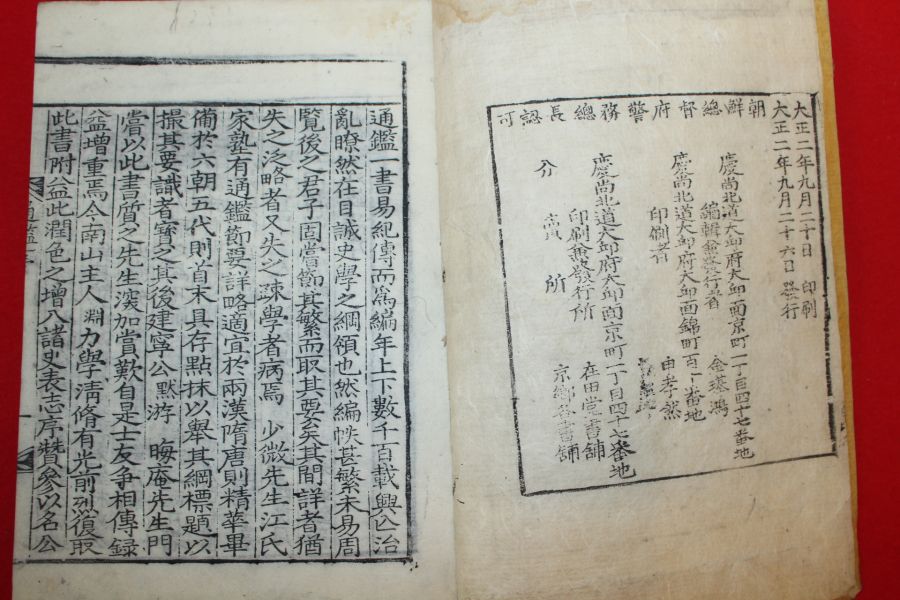 朝鮮總督府警務總長認可
大正二年九月二十日 印刷
大正二年九月二十六日 發行
慶尚北道大邱府大邱面京町一丁目四十七番地
編輯兼發行者 金璂鴻
慶尚北道大邱府大邱面錦町百十番地
印刷者 由孝然
慶尚北道大邱府大邱面京町一丁目四十七番地
印刷兼發行所 在田堂書舖
分賣所 京鄉各書舖
通鑑一書易紀傳而爲編年上下數千百載興亡治
亂瞭然在目誠史學之綱領也然編帙甚繁未易周
覽後之君子固嘗節其繁而取其要矣其間詳者猶
失之泛略者又失之疎學者病焉 少微先生江氏
家塾有通鑑節要詳略適宜於兩漢隋唐則精華畢
備於六朝五代則首末具存點抹以舉其綱標題以
撮其要識者寶之其後建寧公默游 晦庵先生門
嘗以此書質之先生深加賞歎自是士友爭相傳錄
益增重焉今南山主人淵力學淸脩有光前烈復取
此書附益此潤色之增入諸史表志序贊參以名公